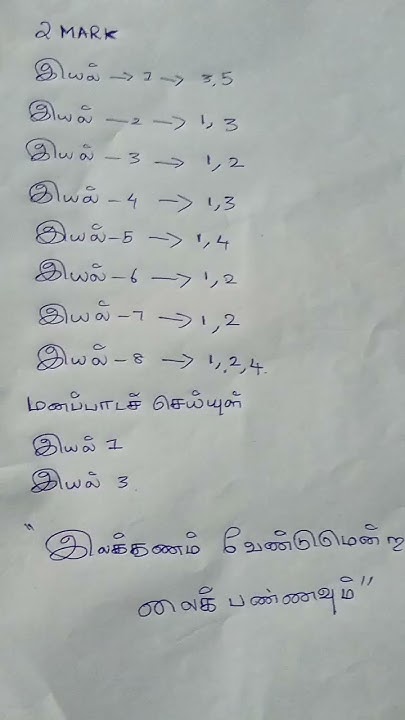 2 MARK
இயல் → 1 → 3,5
இயல் – 2 → 1, 3
இயல் – 3 → 1, 2
இயல் – 4 → 1,3
இயல் – 5 → 1,4
இயல் – 6 → 1,2
இயல் – 7 → 1,2
இயல் – 8 → 1,2,4.
மனப்பாடச் செய்யுள்
இயல் 1
இயல் 3.
"இலக்கணம் வேண்டுமென்ற
லைக் பண்ணவும்"